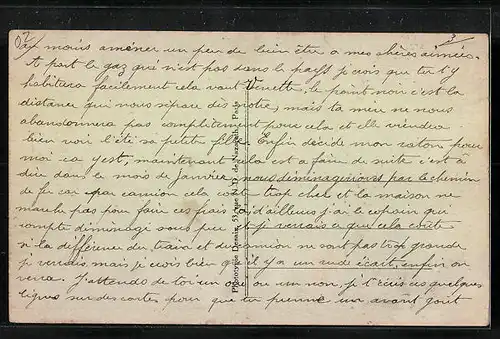 02
3
au moins amener un peu de bien être a mes chères aimées.
A part le gaz qui n'est pas dans le pays je crois que tu t'y
habituera facilement cela vaut Venette, le point noir c'est la
distance qui nous sépare des notre, mais ta mère ne nous
abandonnera pas complètement pour cela et elle viendra
bien voir l'été sa petite fille. Enfin décide mon raton pour
moi ca y est, maintenant cela est a faire de suite c'est à
dire dans le mois de Janvier, nous déménagerions par le chemin
de fer car par camion cela coute trop cher et la maison ne
marche pas pour faire ces frais là, d'ailleurs j'ai le copain qui
compte déménagé sous peu et je verrais ce que cela coute
si la différence du train et du camion ne sont pas trop grande
je verrais mais je crois bien qu'il y a un rude écart, enfin on
verra. J'attends de toi un oui ou un non, je t'écris ces quelques
lignes sur des cartes pour que tu prenne un avant goût
Phototypie Desaix, Paris